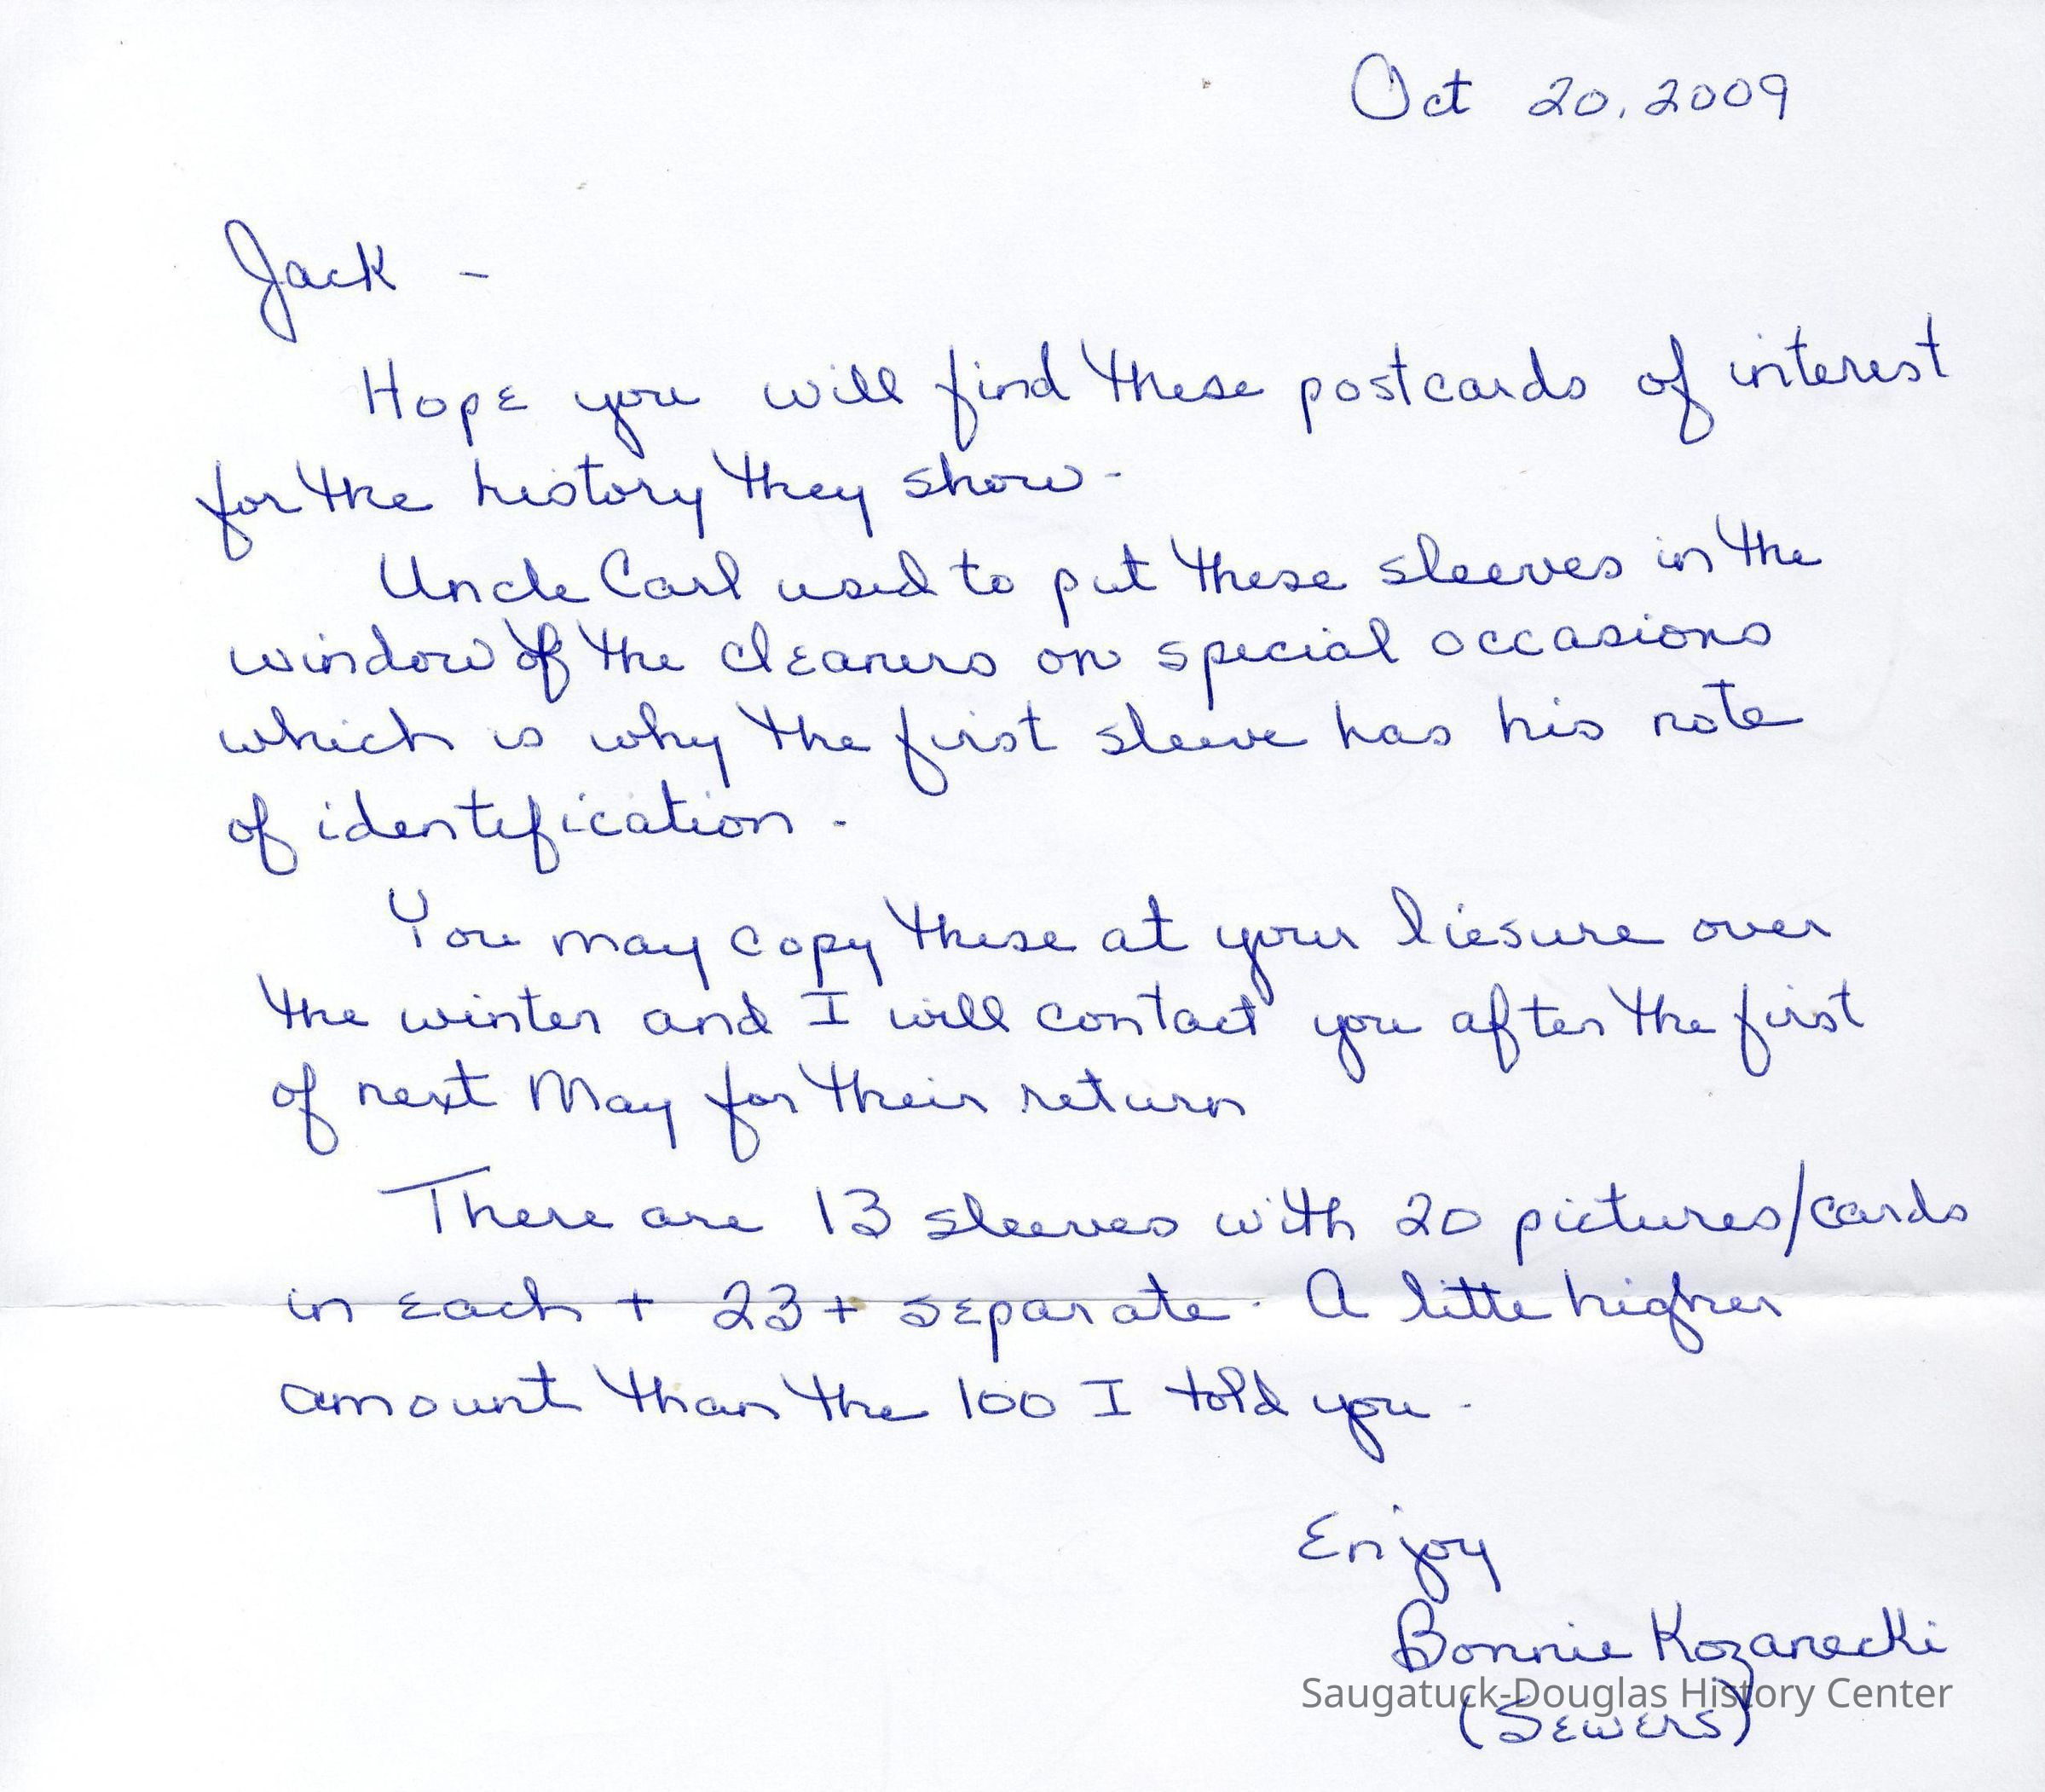 Oct 20, 2009
Jack -
Hope you will find these postcards of interest
for the history they show.
Uncle Carl used to put these sleeves in the
window of the cleaners on special occasions
which is why the first sleeve has his note
of identification.
You may copy these at your liesure over
the winter and I will contact you after the first
of next May for their return
There are 13 sleeves with 20 pictures/cards
in each + 23+ separate. A little higher
amount than the 100 I told you.
Enjoy
Bonnie Kozanecki
Saugatuck-Douglas History Center
(Sewers)